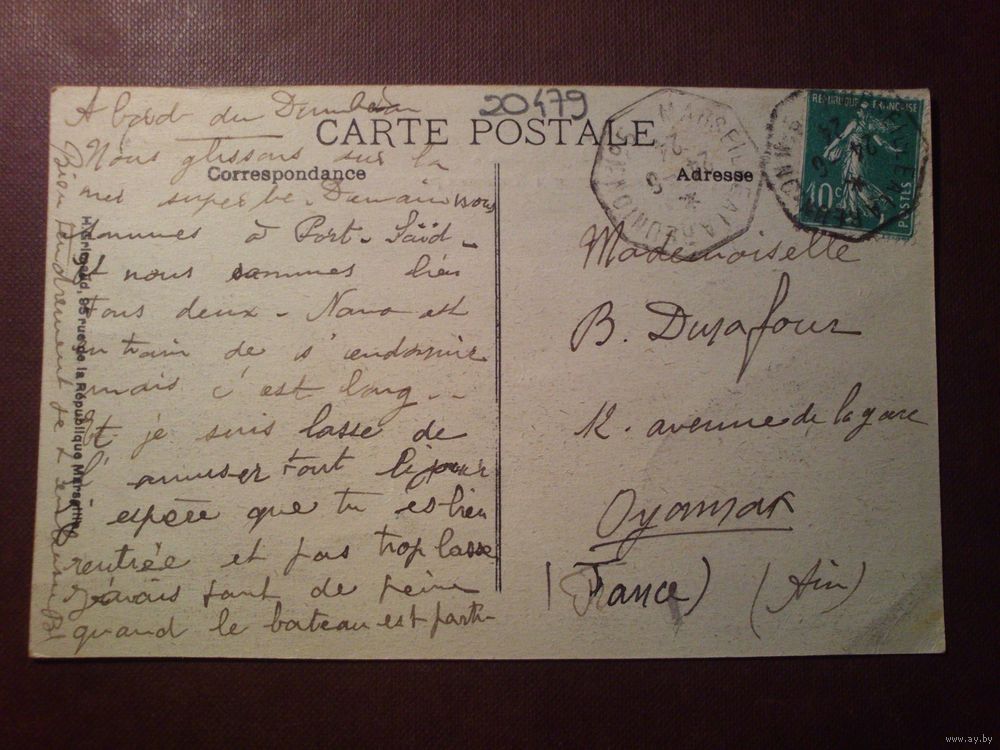 A bord du Dumbea
20479
CARTE POSTALE
Nous glissons sur la
Correspondance
mer superbe. Demain nous
sommes à Port-Saïd-
Et nous sommes bien
tous deux - Nano est
en train de s'endormir
mais c'est long...
Et je suis lasse de
l'amuser tout le jour
espère que tu es bien
rentrée et pas trop lasse
j'avais tant de peine
quand le bateau est parti
Bien tendrement je t'embrasse
H. Grimaud, 95 rue de la République Marseille
Adresse
Mademoiselle
B. Dufafour
12. avenue de la gare
Oyonnax
(France) (Ain)
MARSEILLE A LA REUNION
REPUBLIQUE FRANÇAISE
10c
POSTES
www.ay.by